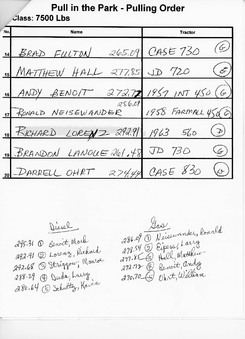 Pull in the Park - Pulling Order
Class: 7500 Lbs
No. Name Tractor
14 BRAD FULTON 265.09 CASE 730 G
15 MATTHEW HALL 277.85 JD 720 G
16 ANDY BENOIT 272.77 1957 INT 450 G
17 RONALD NEISEWANDER 286.09 1958 FARMALL 450 G
18 RICHARD LORENZ 292.91 1963 560 D
19 BRANDON LANOUE 261.48 JD 730 G
20 DARRELL OHRT 274.49 CASE 830
Diesel
295.31 ① Benoit, Mark
292.91 ② Lorenz, Richard
292.68 ③
288.29 ④ Larry
280.64 ⑤
Gas
286.09 ① Neiswander, Ronald
278.54 ② Eipers, Larry
277.85 ③ Hall, Matthew
272.77 ④ Benoit, Andy
270.70 ⑤ Ohrt, William